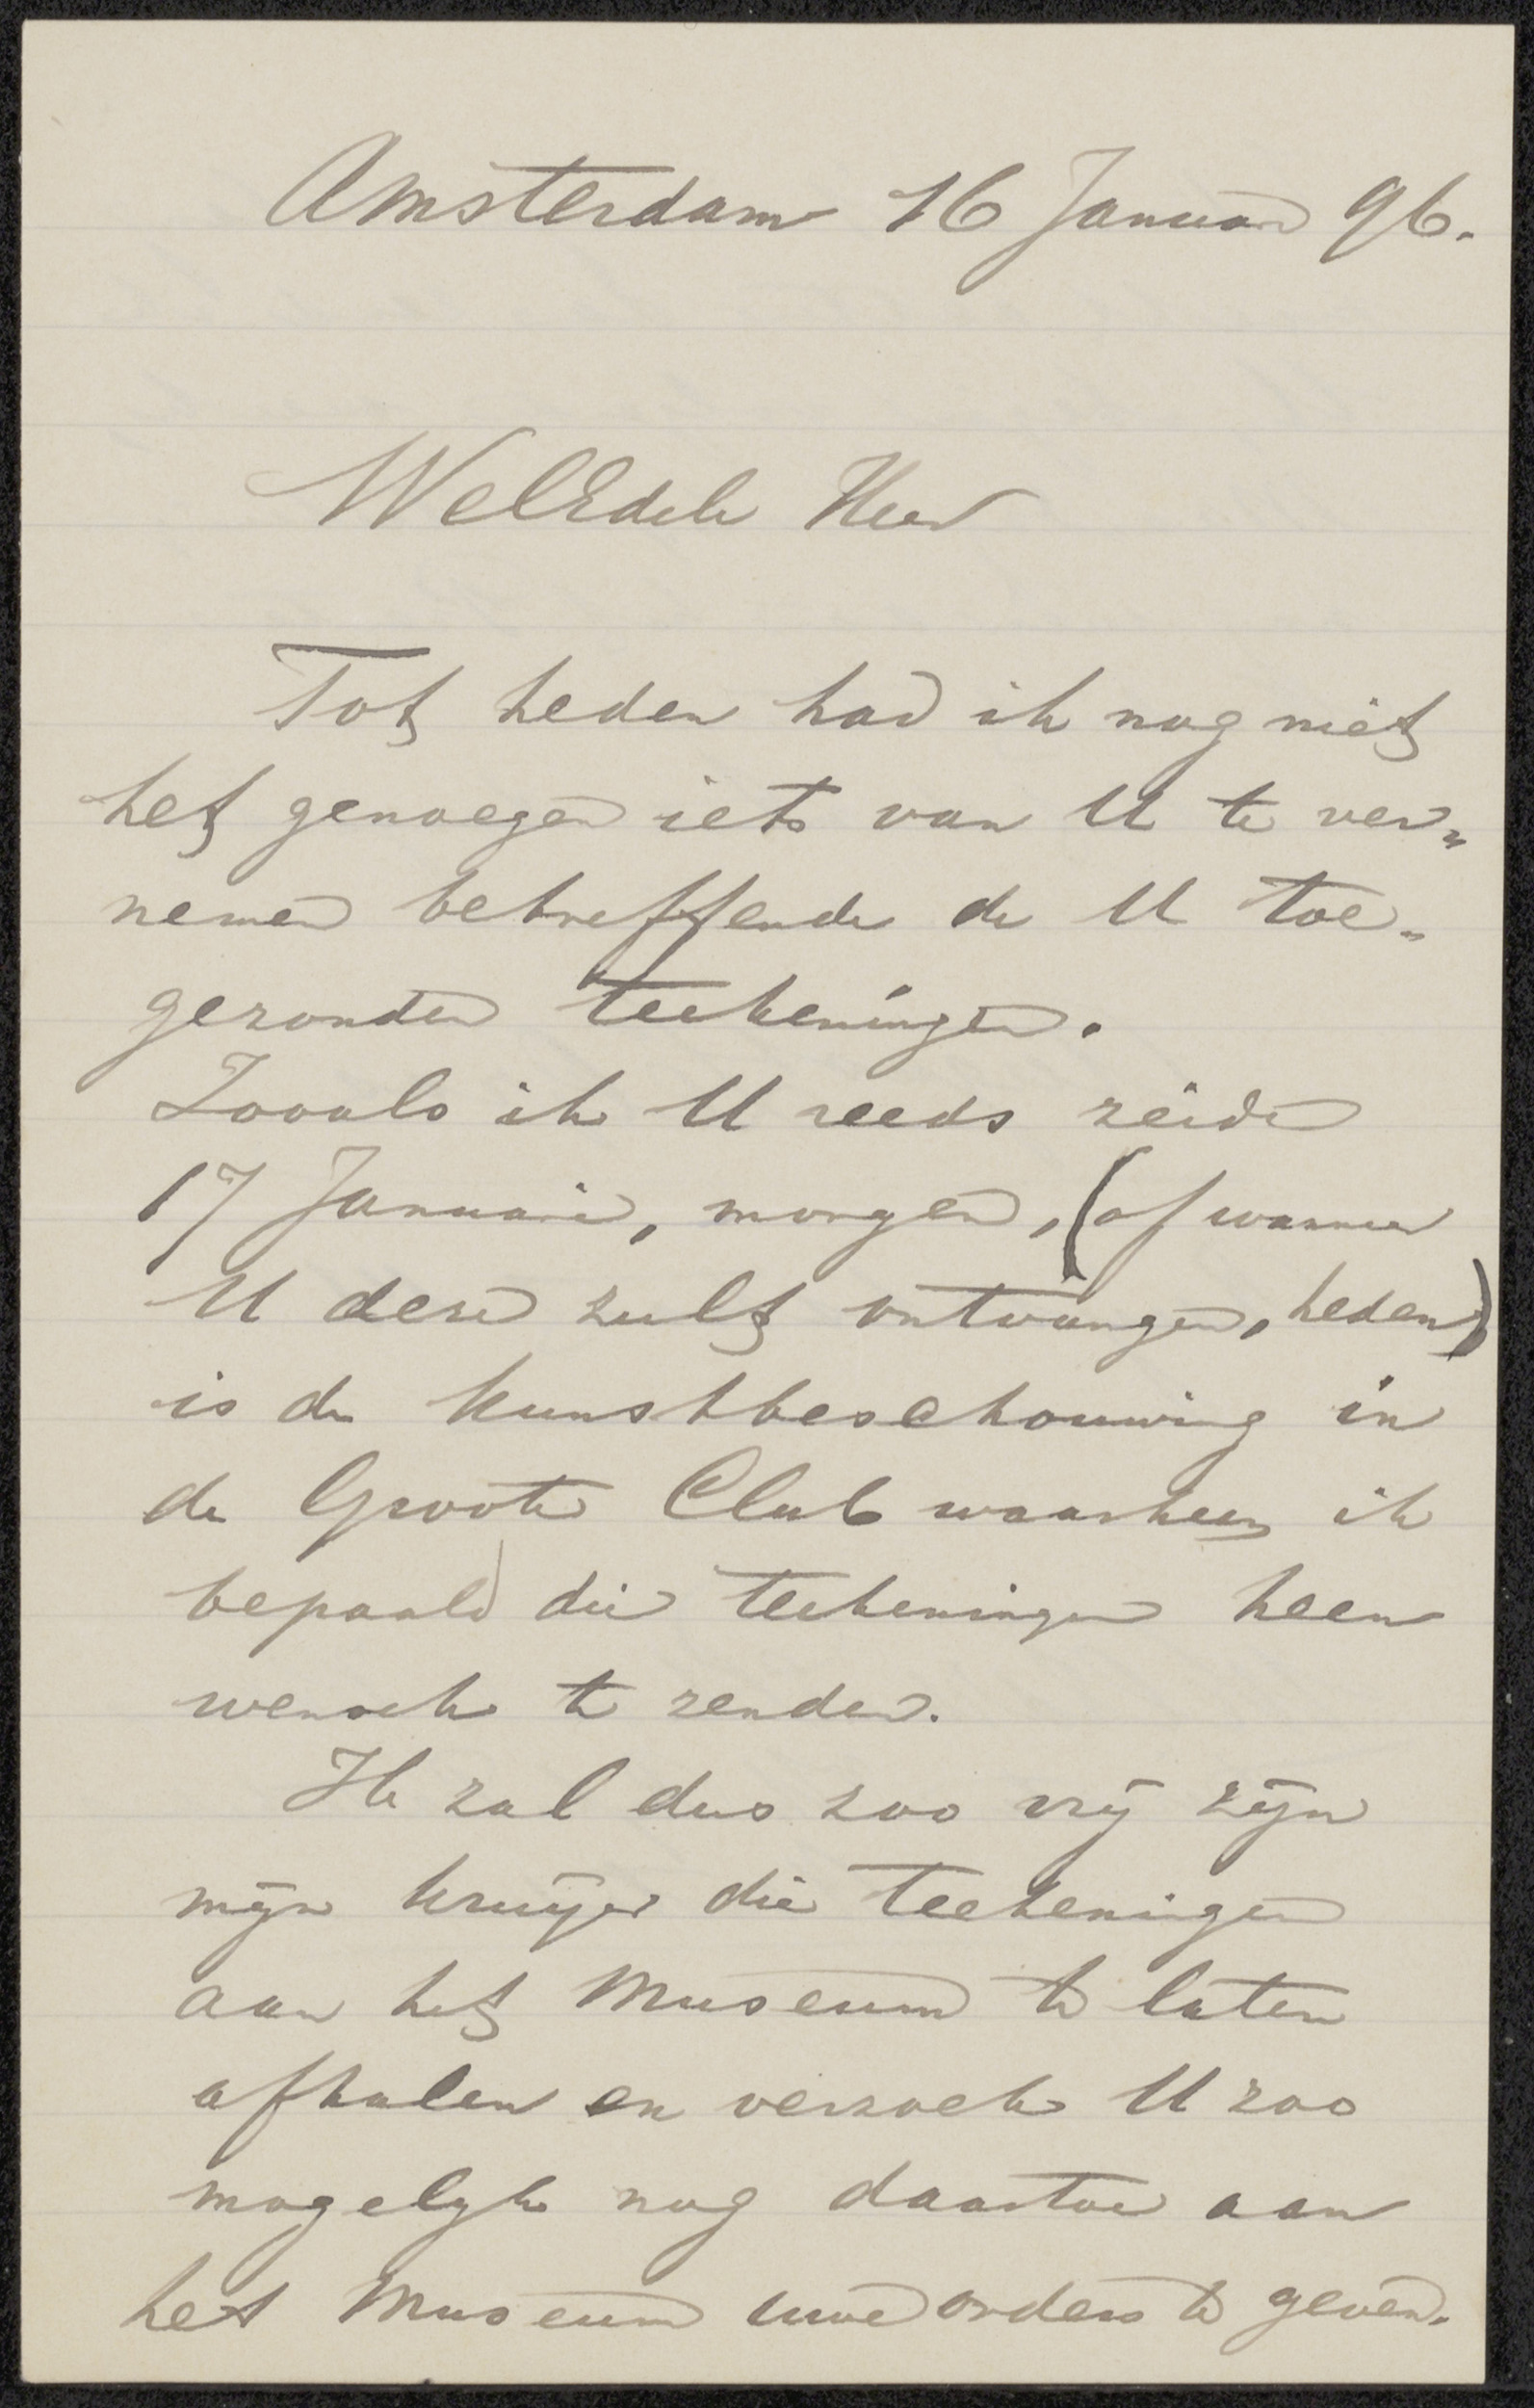 Amsterdam 16 Januari 96.
WelEdele Heer
Tot heden had ik nog niet
het genoegen iets van U te ver„
nemen betreffende de U toe„
gezonden teekeningen.
Zooals ik U reeds zeide
17 Januari, morgen, (of wanneer
U deze zult ontvangen, heden)
is de kunstbeschouwing in
de Groote Club waarheen ik
bepaald die teekeningen heen
wensch te zenden.
Ik zal dus zoo vrij zijn
mijn kruijer die teekeningen
aan het Museum te laten
afhalen en verzoek U zoo
mogelijk nog daartoe aan
het Museum uwe orders te geven.